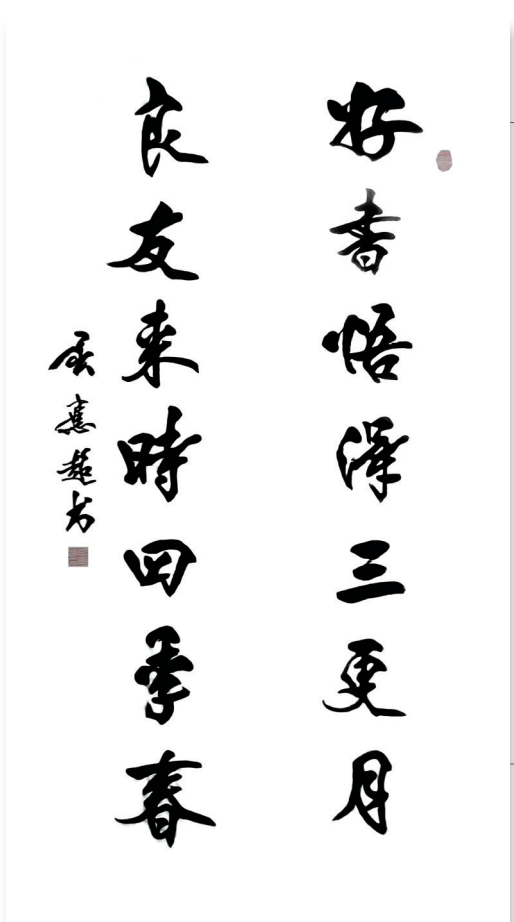 好書悟得三更月
良友来時四季春
超书